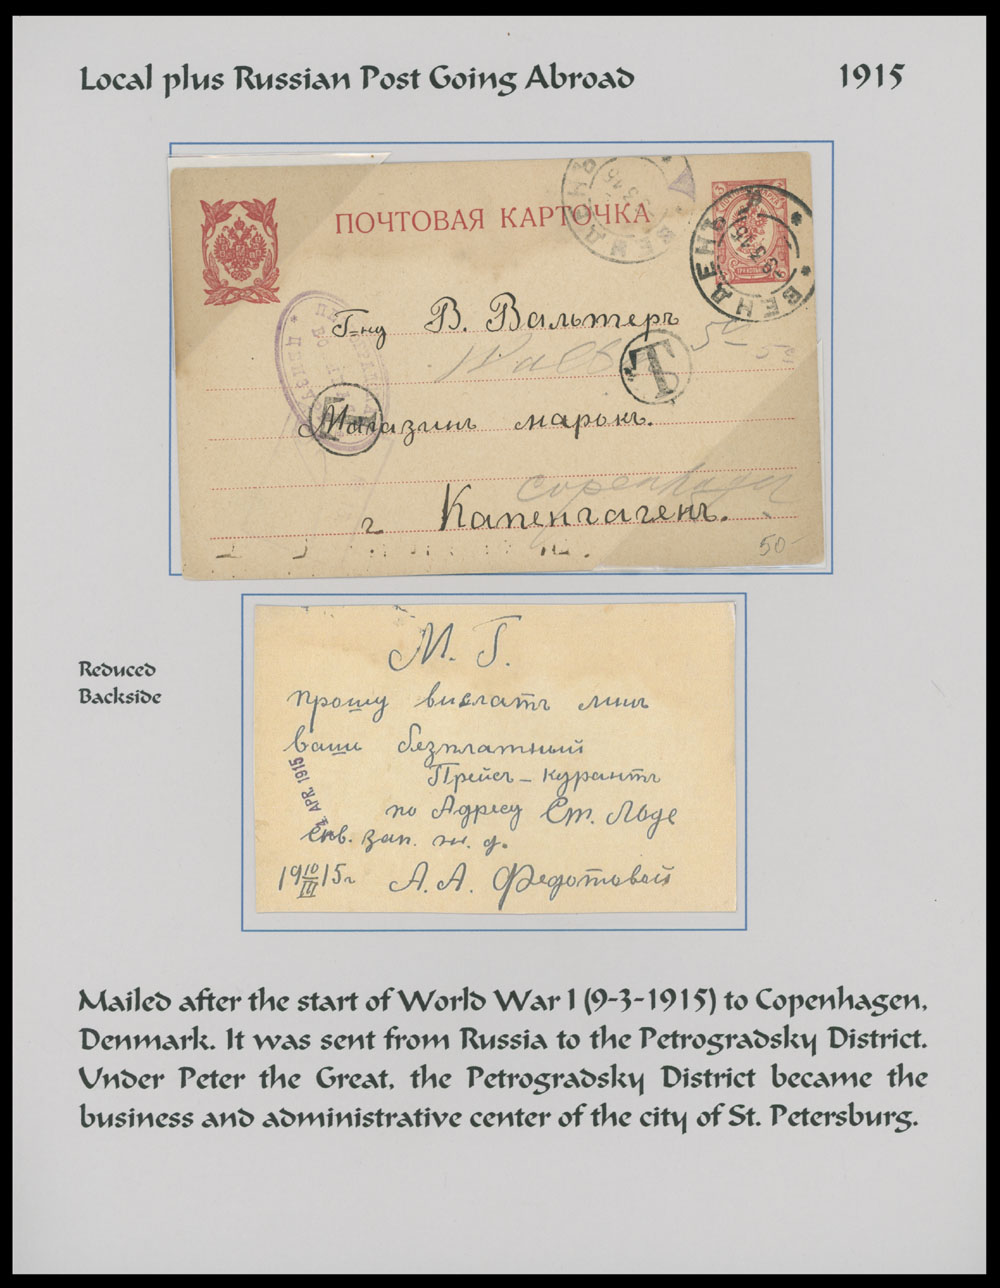 Local plus Russian Post Going Abroad 1915
ПОЧТОВАЯ КАРТОЧКА
ВЕНДЕНЪ
ВЕНДЕНЪ 28 3 15
Г-ну В. Вальтеръ
Т
Т
Магазинъ марокъ.
Copenhagen
г Капенгагенъ.
50-
Reduced
Backside
М. Г.
прошу вислатъ мнѣ
вашъ безплатный
Прейсъ-курантъ
по Адресу Ст. Авде
APR. 1915
Снв. зап. ж. д.
19 10/III 15г А. А. Федотовой
Mailed after the start of World War 1 (9-3-1915) to Copenhagen,
Denmark. It was sent from Russia to the Petrogradsky District.
Under Peter the Great, the Petrogradsky District became the
business and administrative center of the city of St. Petersburg.